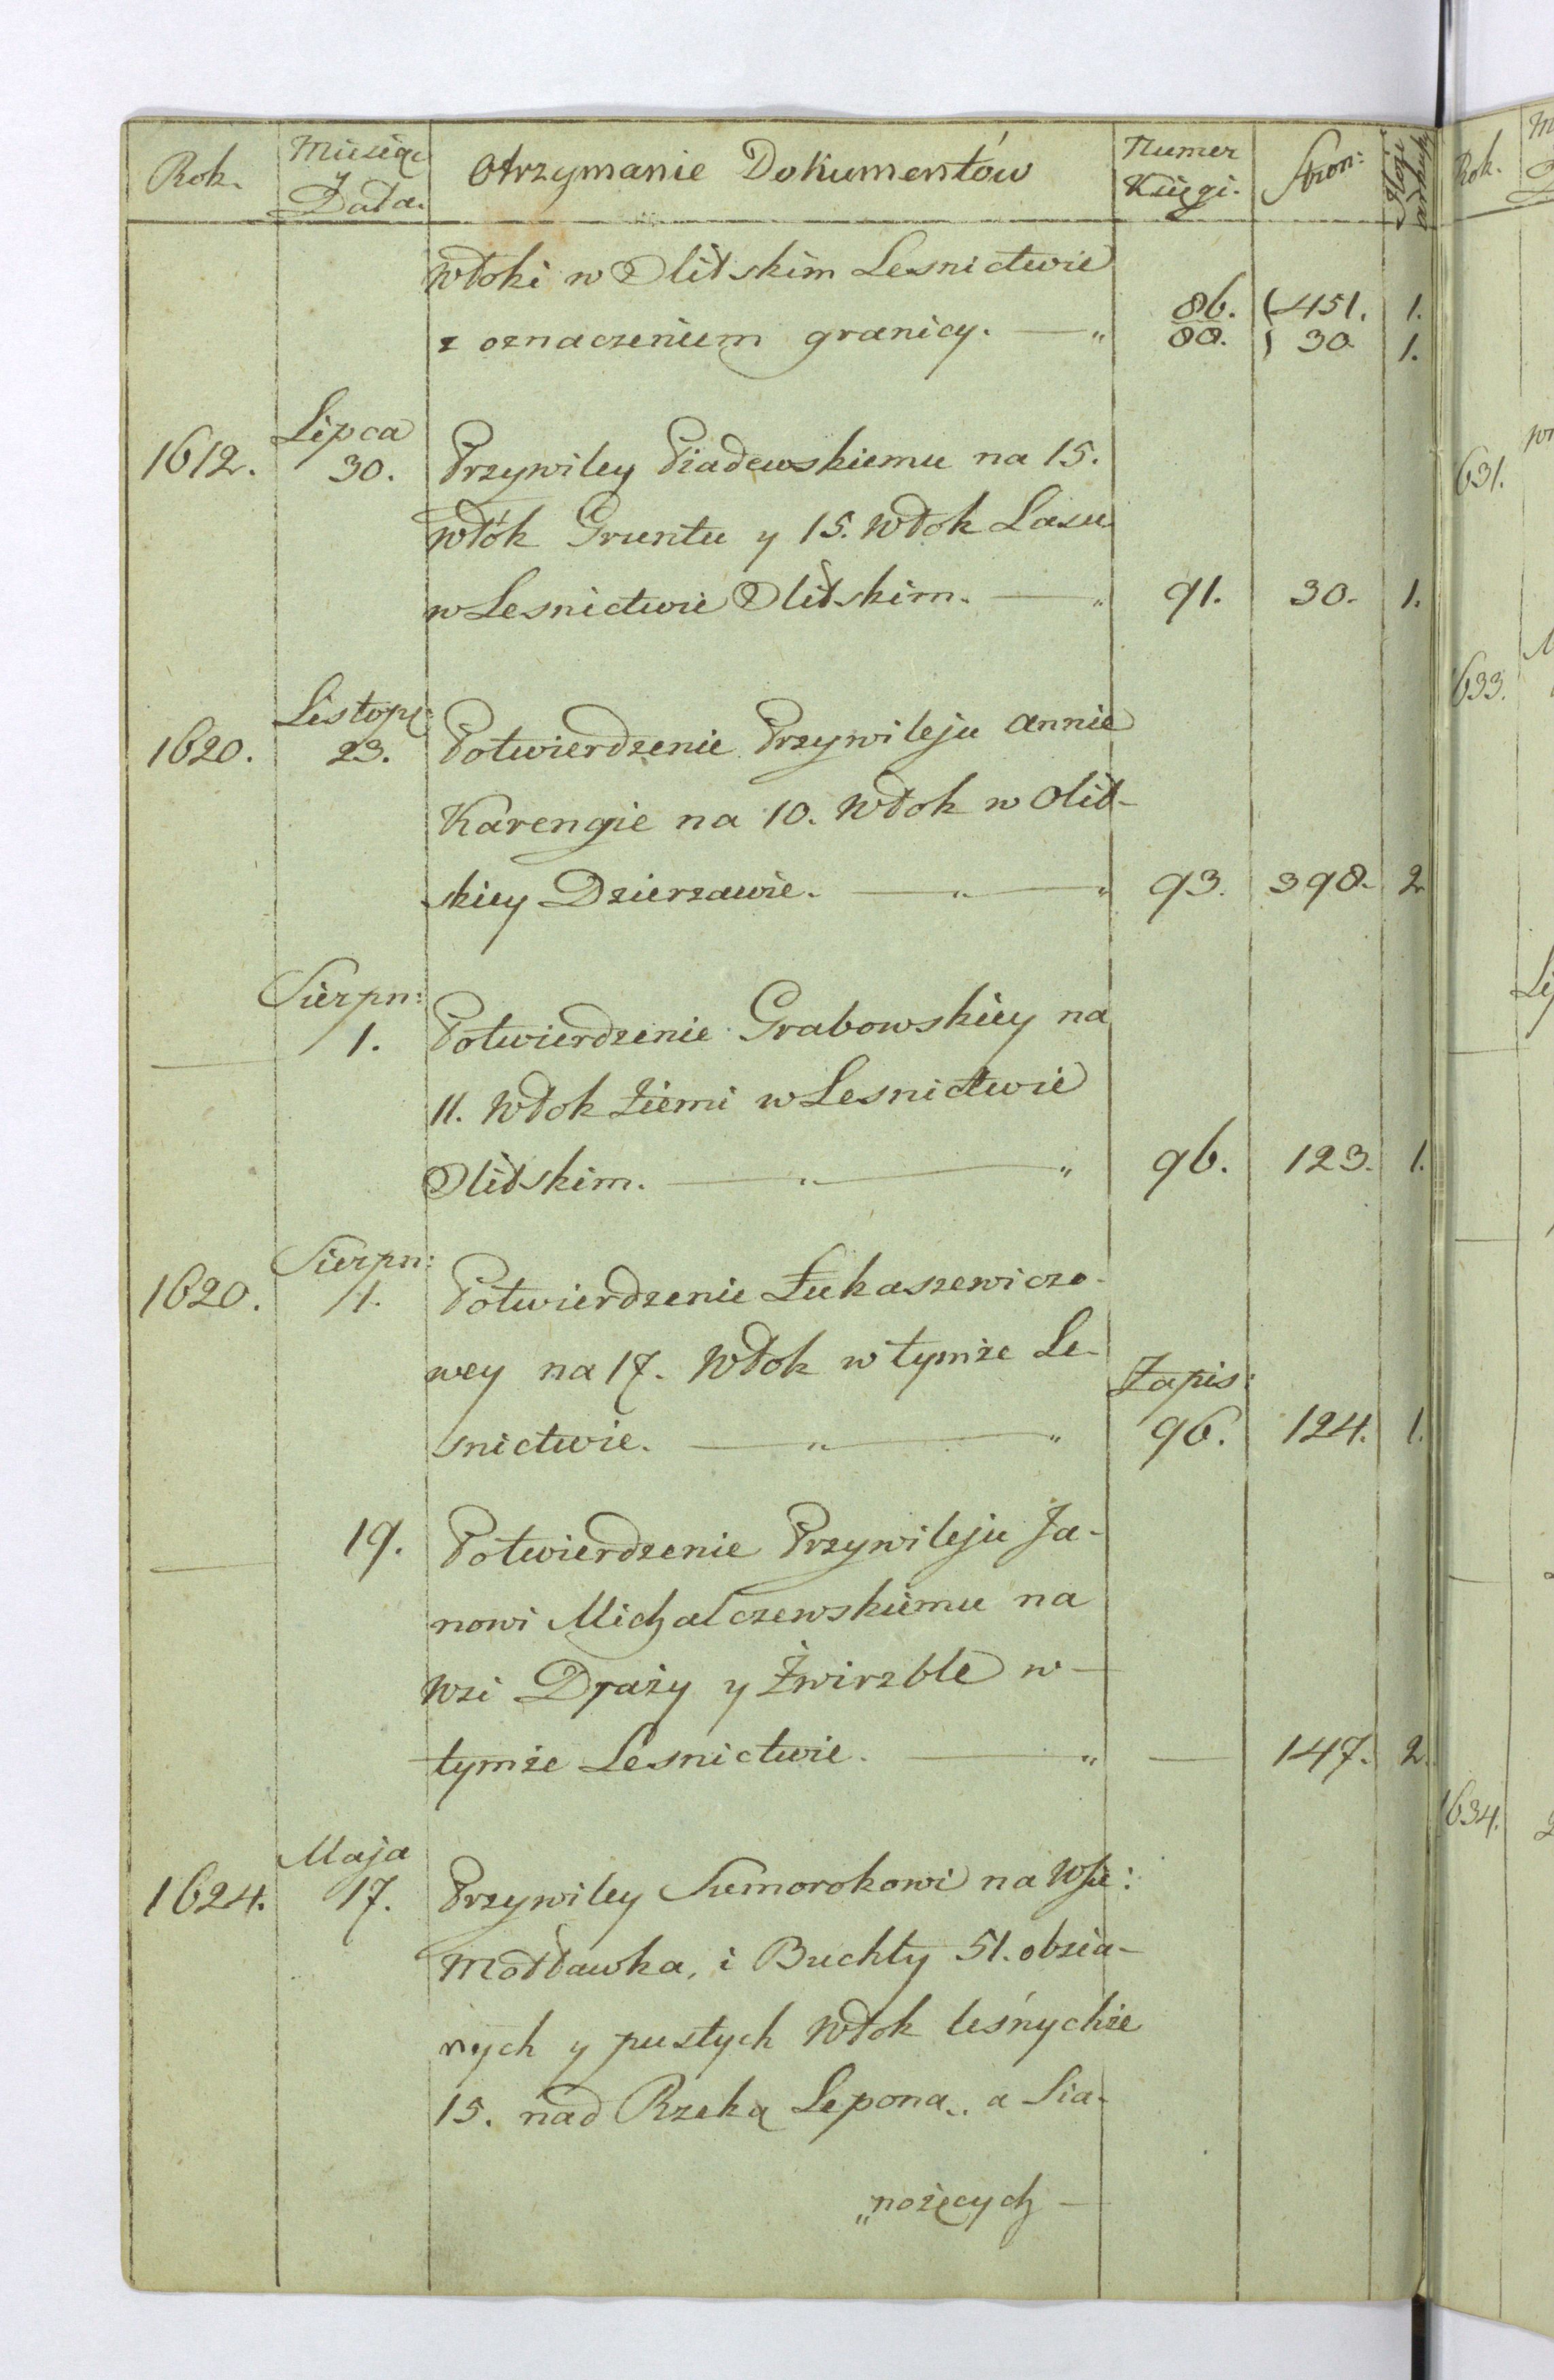 Rok. Miesiąc y Data. Otrzymanie Dokumentów Numer Księgi. Stron:
Włoki w Olitskim Lesnictwie
z oznaczeniem granicy. — „ 86. (451. 1.
88. ) 30. 1.
Lipca
1612. 30. Przywiley Piadewskiemu na 15.
włók Gruntu y 15. Włok Lasu
w Lesnictwie Olitskim. — „ 91. 30. 1.
Listop:
1620. 23. Potwierdzenie Przywileju Annie
Karengie na 10. Włok w Olit-
skiey Dzierzawie. — „ — „ 93. 398. 2
Sierpn:
— 1. Potwierdzenie Grabowskiey na
11. Włok Ziemi w Lesnictwie
Olitskim. — „ — „ 96. 123. 1.
Sierpn:
1620. 1. Potwierdzenie Łukaszewiczo-
wey na 17. Włok w tymże Le-
Zapis:
snictwie. — „ — „ 96. 124. 1.
— 19. Potwierdzenie Przywileju Ja-
nowi Michalczewskiemu na
Wsi Draży y Żwirzble w —
tymże Lesnictwie. — „ — 147. 2.
Maja
1624. 17. Przywiley Sumorokowi na Wsie:
Modławka, i Buchty 51. obsia-
nych y pustych Włok leśnychże
15. nad Rzeką Lepona.. a Sia-
„nożęcych —
Rok.
631.
633.
634.